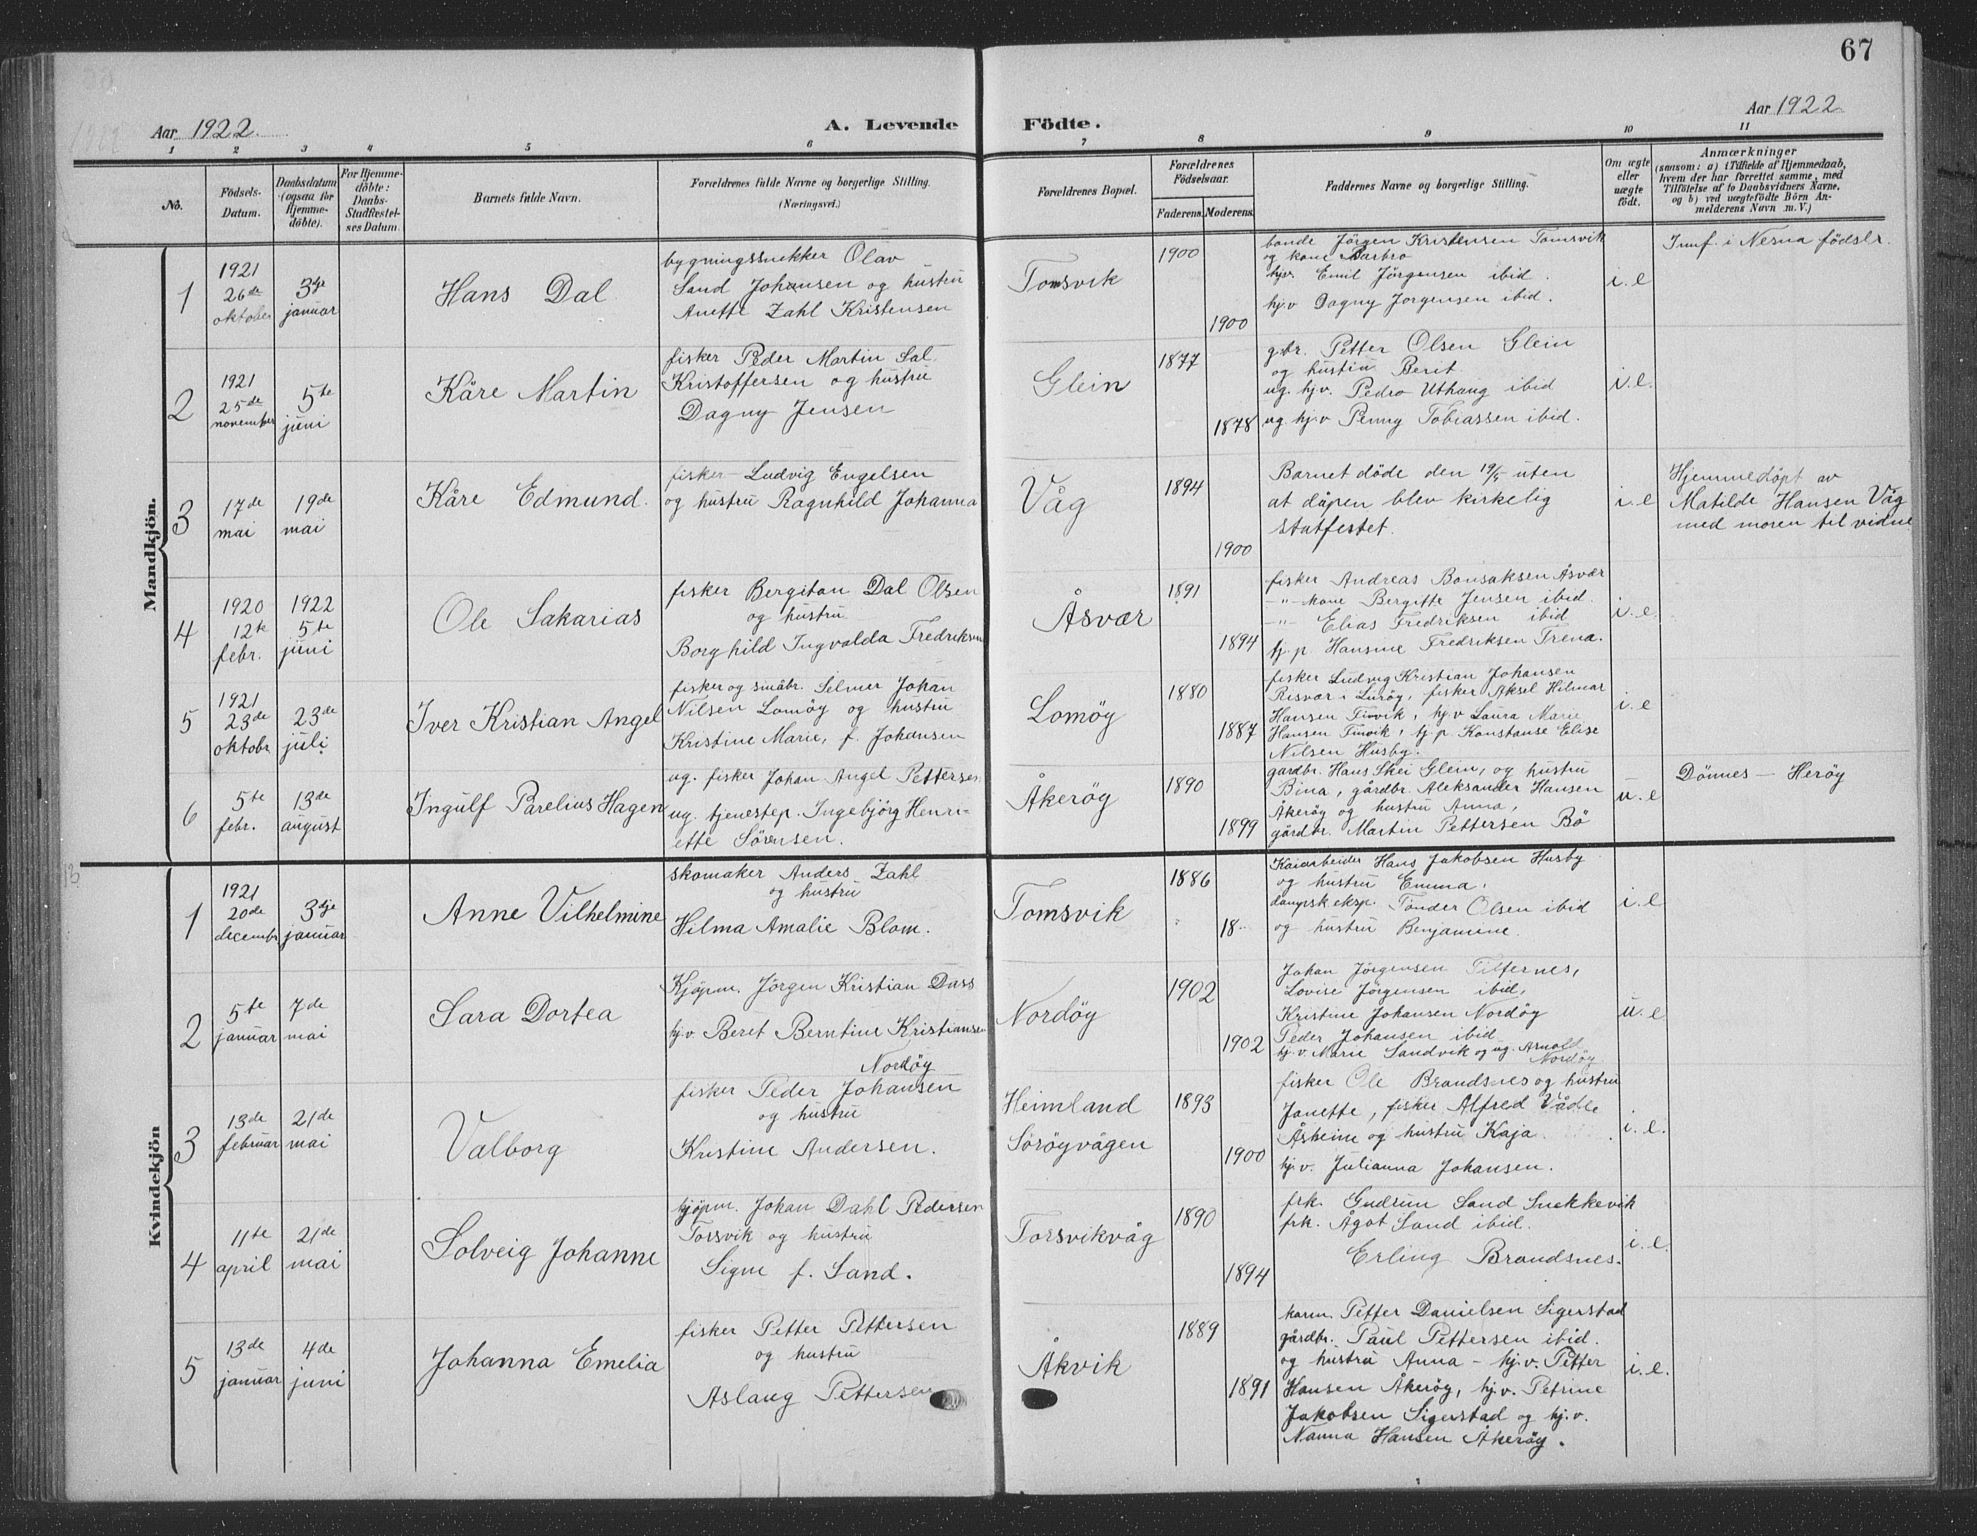 67
Aar 1922.
A. Levende
Födte.
Aar 1922
1 2 3 4 5 6 7 8 9 10 11
No.
Födsels-
Datum.
Daabsdatum
(ogsaa for
Hjemme-
döbte).
For Hjemme-
döbte:
Daabs-
Stadfestel-
ses Datum.
Barnets fulde Navn.
Forældrenes fulde Navne og borgerlige Stilling.
(Næringsvei.)
Forældrenes Bopæl.
Forældrenes
Födselsaar.
Faderens.
Moderens.
Faddernes Navne og borgerlige Stilling.
Om ægte
eller
uægte
födt.
Anmærkninger
(saasom: a) i Tilfælde af Hjemmedaab,
hvem der har forrettet samme, med
Tilföielse af to Daabsvidners Navne,
og b) ved uægtefödte Börn An-
melderens Navn m. V.)
Mandkjön.
1
1921
26de
oktober
3dje
januar
Hans Dal
bygningssnekker Olav
Sand Johansen og hustru
Anette Zahl Kristensen
Tomsvik
1900
1900
bonde Jörgen Kristensen Tomsvik
og kone Barbro
hjv. Emil Jörgensen ibid.
hj.v Dagny Jörgensen ibid.
i. e
Innf. i Nesna födselr.
2
1921
25de
november
5te
juni
Kåre Martin
fisker Peder Martin Sal
Kristoffersen og hustru
Dagny Jensen
Glein
1877
1878
g.br. Petter Olsen Glein
og hustru Berit
ug. hj.v. Pedro Uthaug ibid
ug. hj.v Penny Tobiassen ibid.
i. e.
3
17de
mai
19de
mai
Kåre Edmund.
fisker Ludvig Engelsen
og hustru Ragnhild Johanna
Våg
1894
1900
Barnet döde den 19/5 uten
at dåpen blev kirkelig
statfestet.
i. e
Hjemmedöpt av
Matilde Hansen Våg
med moren til vidne
4
1920
12te
febr.
1922
5te
juni
Ole Sakarias
fisker Bergiton Dal Olsen
og hustru
Borghild Ingvalda Fredriksen
Åsvær
1891
1894
fisker Andreas Bonsaksen Åsvær
-"- kone Bergitte Jensen ibid.
-"- Elias Fredriksen ibid
tj. p Hansine Fredriksen Trena.
i. e.
5
1921
23de
oktobr
23de
juli
Iver Kristian Angel
fisker og småbr. Selmer Johan
Nilsen Lomöy og hustru
Kristine Marie, f. Johansen
Lomöy
1880
1887
fisker Ludvig Kristian Johansen
Risvær i Luröy, fisker Aksel Hilmar
Hansen Finvik, hj.v Laura Marie
Hansen Finvik, tj. p. Konstanse Elise
Nilsen Husby.
i. e
6
5te
febr.
13de
august
Ingulf Parelius Hagen
ug. fisker Johan Angel Pettersen
ug. tjenestep. Ingebjörg Henri-
ette Sörensen.
Åkeröy
1890
1899
gårdbr. Hans Skei Glein, og hustru
Bina, gårdbr. Aleksander Hansen
Åkeröy og hustru Anna,
gårdbr. Martin Pettersen Bö
u. e
Dönnes - Heröy
Kvindekjön
1
1921
20de
decembr
3dje
januar
Anne Vilhelmine
skomaker Anders Zahl
og hustru
Hilma Amalie Blom.
Tomsvik
1886
18
Kaiarbeider Hans Jakobsen Husby
og hustru Emma,
dampsk.eksp. Tönder Olsen ibid
og hustru Benjamine.
i. e
2
5te
januar
7de
mai
Sara Dortea
Kjöpm. Jörgen Kristian Dass
hj.v. Beret Berntine Kristiansen
Nordöy
Nordöy
1902
1902
Johan Jörgensen Tilfernes,
Lovise Jörgensen ibid,
Kristine Johansen Nordöy
Peder Johansen ibid
hj.v. Marie Sandvik og ug. Arnold
Nordöy
u. e
3
13de
februar
21de
mai
Valborg
fisker Peder Johansen
og hustru
Kristine Andersen.
Heimland
Söröyvågen
1893
1900
fisker Ole Brandsnes og hustru
Janette, fisker Alfred
Åsheim og hustru Kaja
hj.v. Julianna Johansen.
i. e.
4
11te
april
21de
mai
Solveig Johanne
kjöpm. Johan Dahl Pedersen
Torsvik og hustru
Signe f. Sand.
Torsvikvåg
1890
1894
frk. Gudrun Sand Snekkevik
frk. Ågot Sand ibid.
Erling Brandsnes.
i. e.
5
13de
januar
4de
juni
Johanna Emelia
fisker Petter Pettersen
og hustru
Aslaug Pettersen
Åkvik
1889
1891
Petter Danielsen Sigerstad
gårdbr. Paul Pettersen ibid.
og hustru Anna - hj.v. Petter
Hansen Åkeröy, hj.v. Petrine
Jakobsen Sigerstad og hj.v.
Nanna Hansen Åkeröy.
i. e.